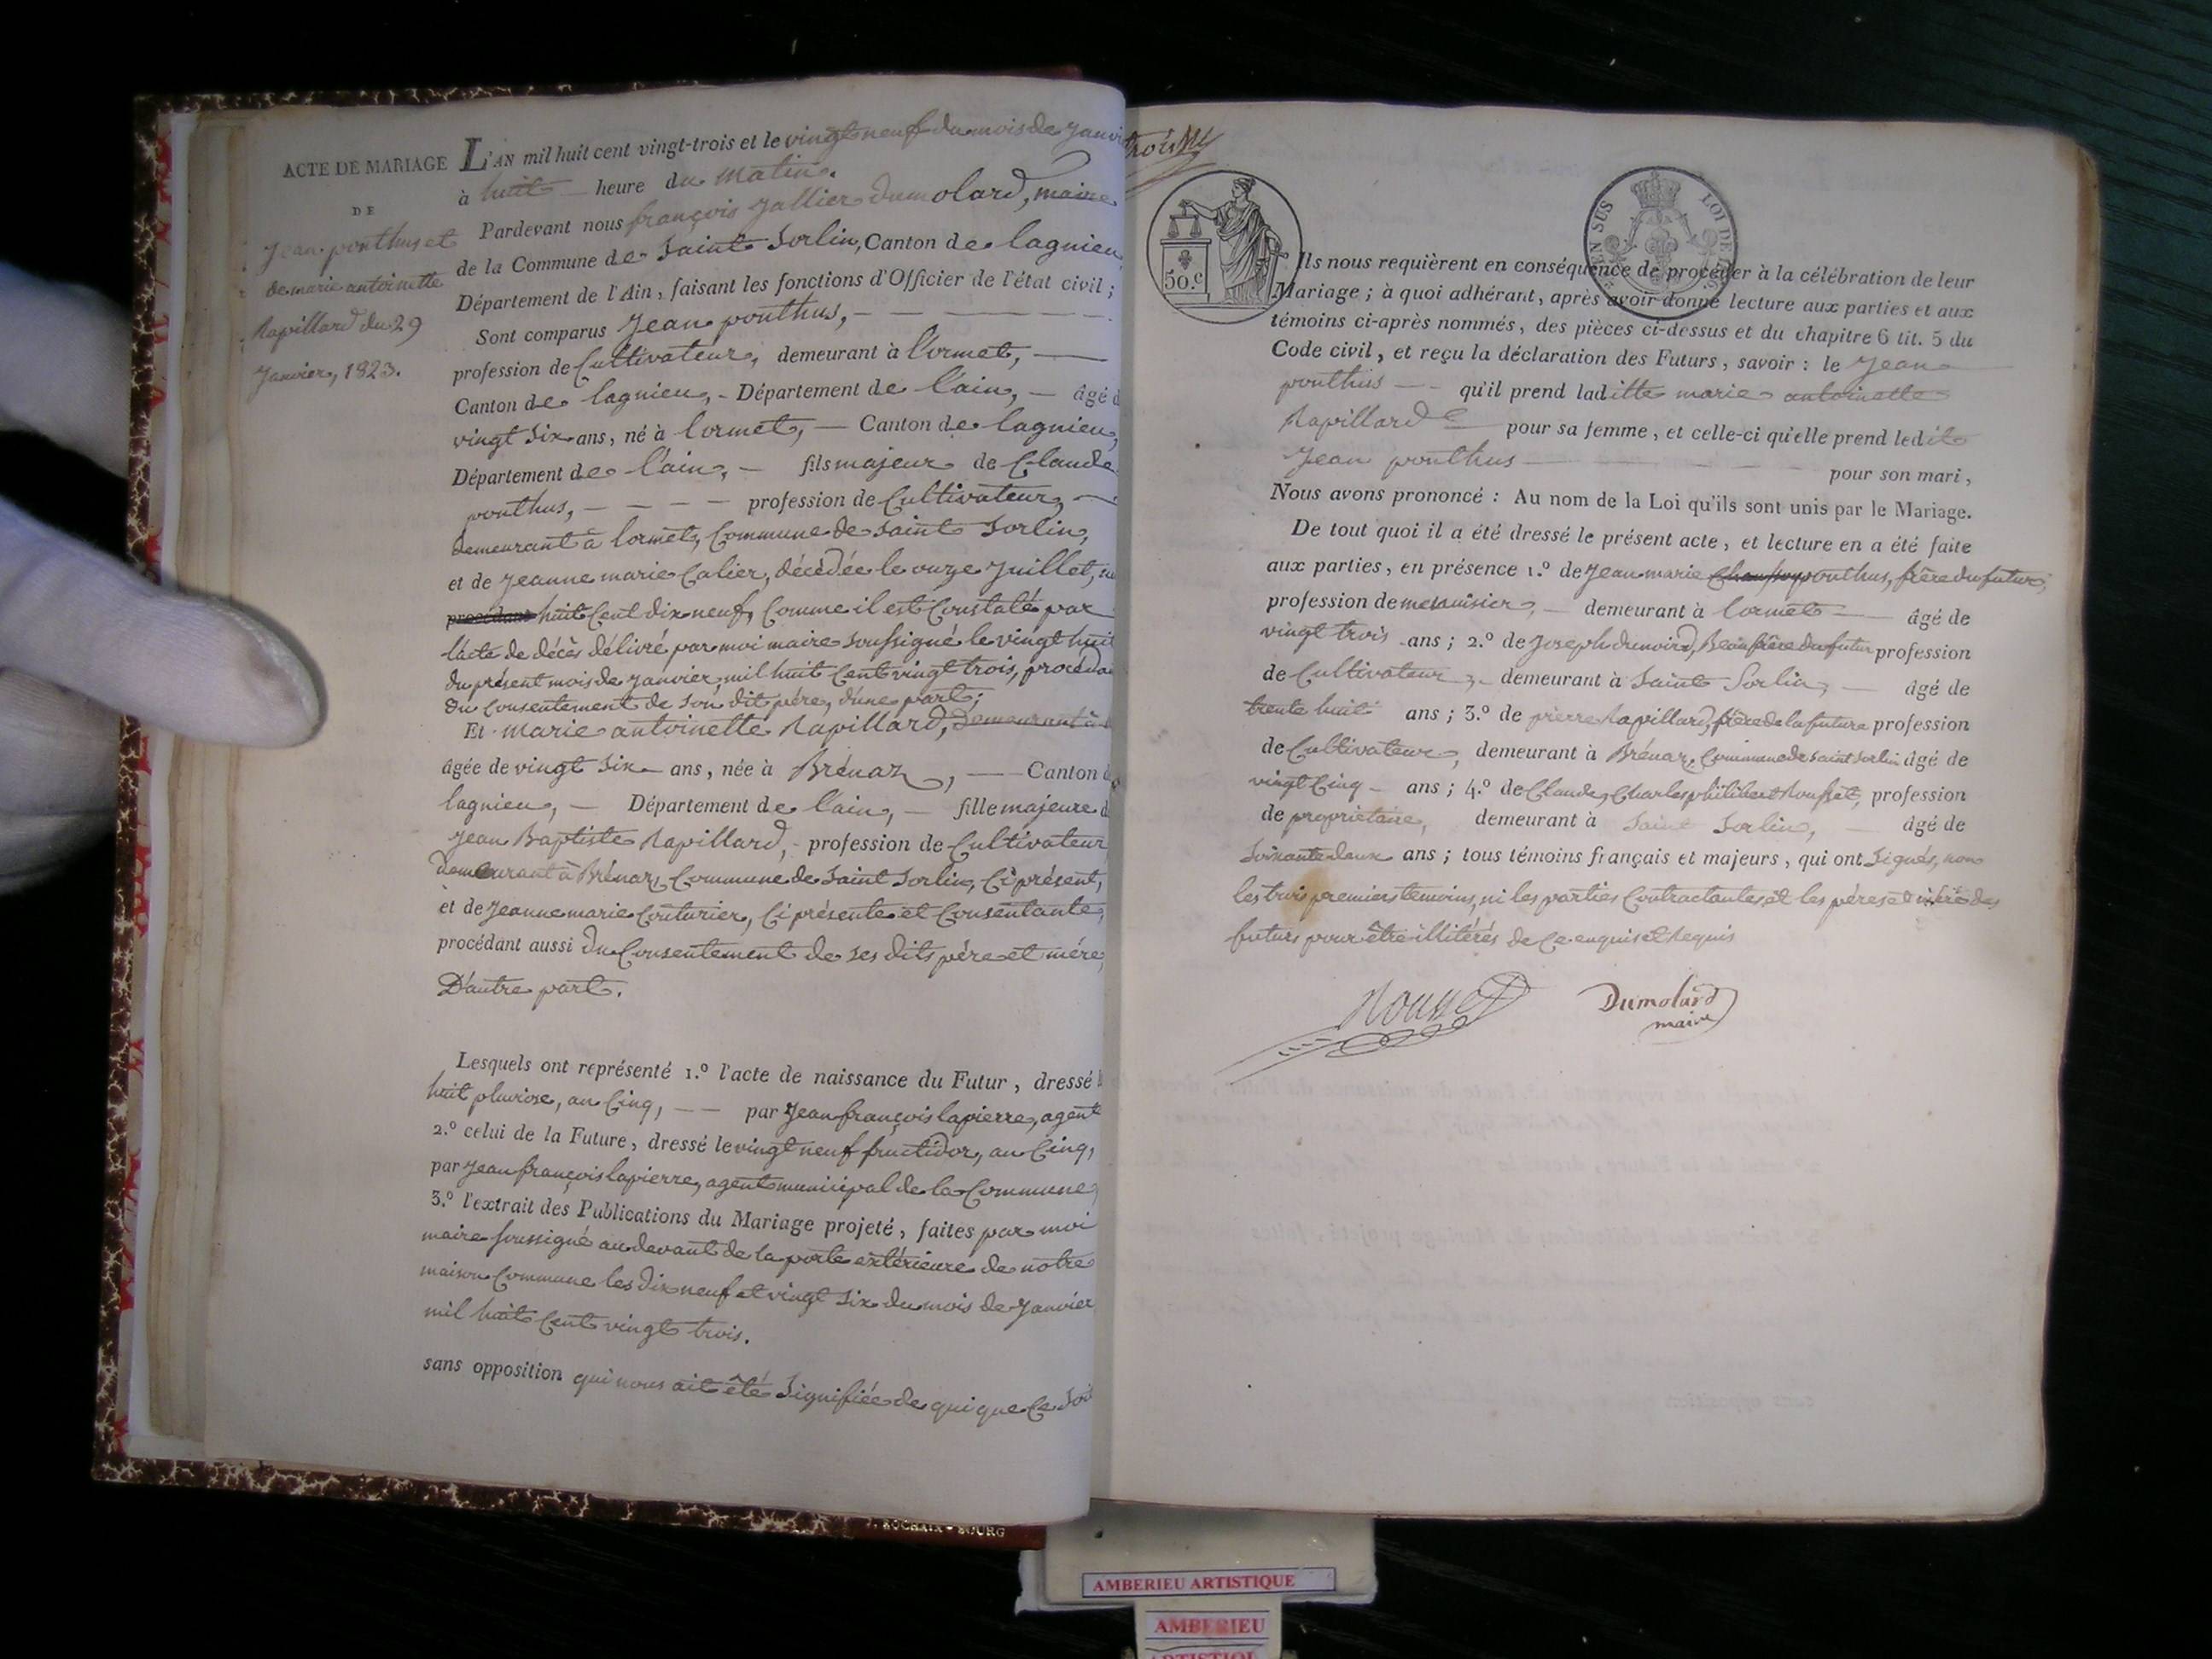 ACTE DE MARIAGE
DE
Jean ponthus et
de marie antoinette
Rapillard du 29
Janvier, 1823.
L'AN mil huit cent vingt-trois et le vingt neuf du mois de Janvi
à huit heure du matin.
Pardevant nous françois Jallier dumolard, maire
de la Commune de Saint Sorlin, Canton de lagnieu,
Département de l'Ain, faisant les fonctions d'Officier de l'état civil;
Sont comparus Jean ponthus,
profession de Cultivateur, demeurant à lormet,
Canton de lagnieu, - Département de l'ain, - âgé d
vingt Six ans, né à lormet, - Canton de lagnieu,
Département de l'ain, - fils majeur de Claude
ponthus, - - - - profession de Cultivateur, -
demeurant à lormet, Commune de Saint Sorlin,
et de Jeanne marie Calier, décédée le onze Juillet,
procédant huit Cent dix neuf, Comme il est Constaté par
l'acte de décès délivré par moi maire Soussigné le vingt huit
du présent mois de Janvier, mil huit Cent vingt trois, procéda
du Consentement de Son dit père, d'une part;
Et marie antoinette Rapillard, demeurant à
âgée de vingt Six ans, née à Brénaz, - Canton d
lagnieu, - Département de l'ain, - fille majeure d
Jean Baptiste Rapillard, - profession de Cultivateur
demeurant à Brénaz, Commune de Saint Sorlin, Ci présent,
et de Jeanne marie Couturier, Ci présente et Consentante,
procédant aussi du Consentement de Ses dits père et mère,
D'autre part.
Lesquels ont représenté 1.º l'acte de naissance du Futur, dressé l
huit pluviose, an Cinq, - - par Jean françois lapierre, agent
2.º celui de la Future, dressé le vingt neuf fructidor, an Cinq,
par Jean françois lapierre, agent municipal de la Commune,
3.º l'extrait des Publications du Mariage projeté, faites par moi
maire soussigné au devant de la porte extérieure de notre
maison Commune les dix neuf et vingt Six du mois de Janvier
mil huit Cent vingt trois.
sans opposition qui nous ait été Signifiée de qui que Ce Soit
trois
50.c
EN SUS LOI DE
Ils nous requièrent en conséquence de procéder à la célébration de leur
Mariage; à quoi adhérant, après avoir donné lecture aux parties et aux
témoins ci-après nommés, des pièces ci-dessus et du chapitre 6 tit. 5 du
Code civil, et reçu la déclaration des Futurs, savoir: le Jean
ponthus - - qu'il prend laditte marie antoinette
Rapillard pour sa femme, et celle-ci qu'elle prend ledit
Jean ponthus pour son mari,
Nous avons prononcé: Au nom de la Loi qu'ils sont unis par le Mariage.
De tout quoi il a été dressé le présent acte, et lecture en a été faite
aux parties, en présence 1.º de Jean marie ponthus, frère du futur,
profession de menuisier, - demeurant à lormet - âgé de
vingt trois ans; 2.º de Joseph dunoird, Beaufrère du futur profession
de Cultivateur, - demeurant à Saint Sorlin, - âgé de
trente huit ans; 3.º de pierre Rapillard, frère de la future profession
de Cultivateur, demeurant à Brénaz, Commune de Saint Sorlin âgé de
vingt Cinq - ans; 4.º de Claude, Charles philibert Rousset, profession
de propriétaire, demeurant à Saint Sorlin, - âgé de
Soixante deux ans; tous témoins français et majeurs, qui ont Signés, non
les trois premiers temoins, ni les parties Contractantes, et les pères et mère des
futurs pour être illitérés de Ce enquis et Requis
Rousset
Dumolard
maire
ROCHAIX - BOURG
AMBERIEU ARTISTIQUE
AMBERIEU
ARTISTIQUE